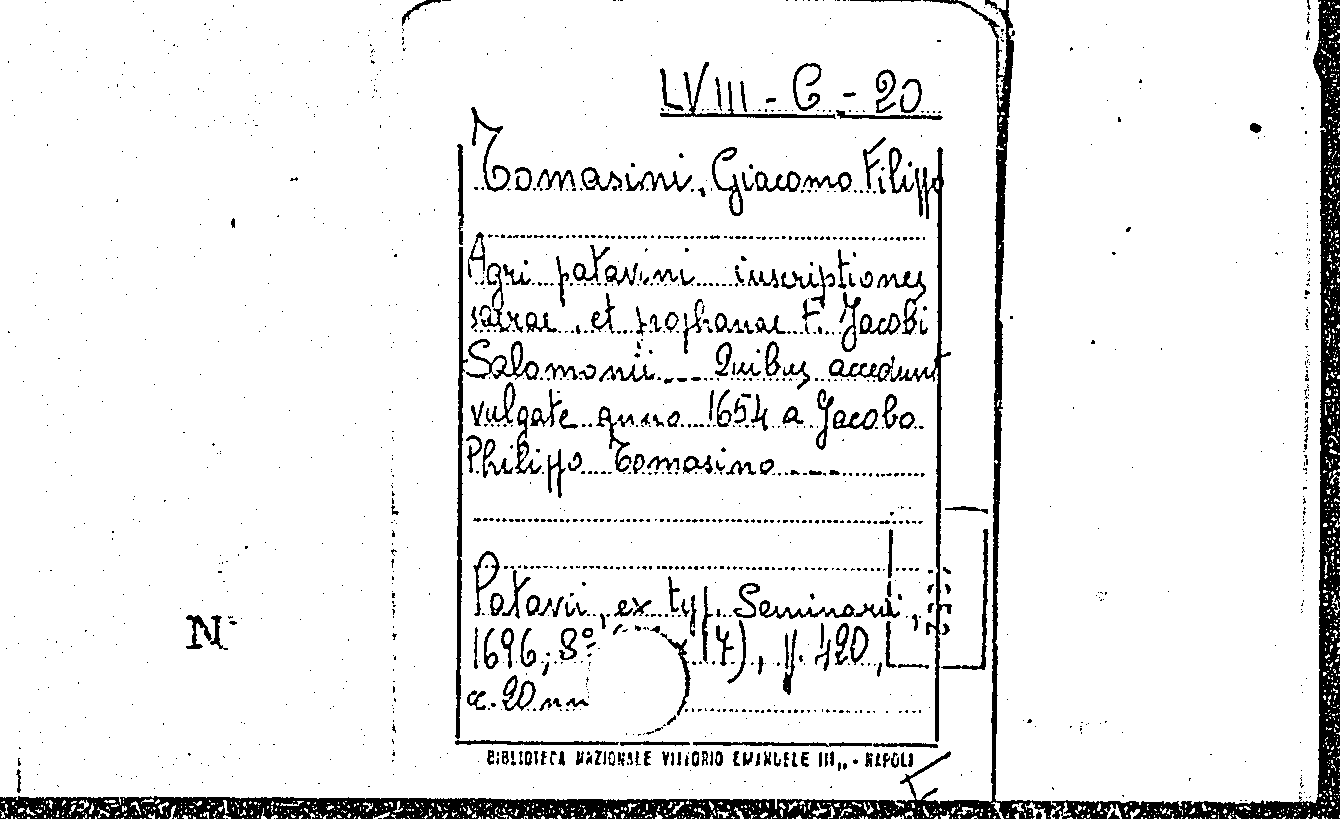 LVIII - G - 20
Tomasini, Giacomo Filippo
Agri patavini inscriptiones
sacrae, et prophanae F. Jacobi
Salomonii... Quibus accedunt
vulgate anno 1654 a Jacobo
Philippo Tomasino ...
Patavii, ex typ. Seminarii,
1696, 8° 17), p. 420,
c. 20 nn
N
BIBLIOTECA NAZIONALE VITTORIO EMANUELE III,, - NAPOLI